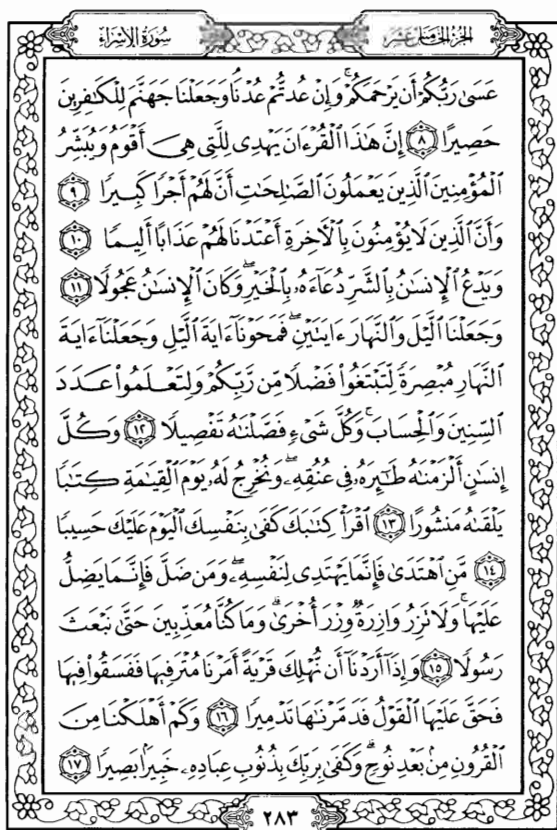 سُورَةُ الإِسْرَاءِ
الجُزْءُ الخَامِسَ عَشَرَ
عَسَىٰ رَبُّكُمْ أَن يَرْحَمَكُمْ ۚ وَإِنْ عُدتُّمْ عُدْنَا وَجَعَلْنَا جَهَنَّمَ لِلْكَٰفِرِينَ
حَصِيرًا ٨ إِنَّ هَٰذَا ٱلْقُرْءَانَ يَهْدِى لِلَّتِى هِىَ أَقْوَمُ وَيُبَشِّرُ
ٱلْمُؤْمِنِينَ ٱلَّذِينَ يَعْمَلُونَ ٱلصَّٰلِحَٰتِ أَنَّ لَهُمْ أَجْرًا كَبِيرًا ٩
وَأَنَّ ٱلَّذِينَ لَا يُؤْمِنُونَ بِٱلْءَاخِرَةِ أَعْتَدْنَا لَهُمْ عَذَابًا أَلِيمًا ١٠
وَيَدْعُ ٱلْإِنسَٰنُ بِٱلشَّرِّ دُعَآءَهُۥ بِٱلْخَيْرِ ۖ وَكَانَ ٱلْإِنسَٰنُ عَجُولًا ١١
وَجَعَلْنَا ٱلَّيْلَ وَٱلنَّهَارَ ءَايَتَيْنِ ۖ فَمَحَوْنَآ ءَايَةَ ٱلَّيْلِ وَجَعَلْنَآ ءَايَةَ
ٱلنَّهَارِ مُبْصِرَةً لِّتَبْتَغُوا۟ فَضْلًا مِّن رَّبِّكُمْ وَلِتَعْلَمُوا۟ عَدَدَ
ٱلسِّنِينَ وَٱلْحِسَابَ ۚ وَكُلَّ شَىْءٍ فَصَّلْنَٰهُ تَفْصِيلًا ١٢ وَكُلَّ
إِنسَٰنٍ أَلْزَمْنَٰهُ طَٰٓئِرَهُۥ فِى عُنُقِهِۦ ۖ وَنُخْرِجُ لَهُۥ يَوْمَ ٱلْقِيَٰمَةِ كِتَٰبًا
يَلْقَىٰهُ مَنشُورًا ١٣ ٱقْرَأْ كِتَٰبَكَ كَفَىٰ بِنَفْسِكَ ٱلْيَوْمَ عَلَيْكَ حَسِيبًا
١٤ مَّنِ ٱهْتَدَىٰ فَإِنَّمَا يَهْتَدِى لِنَفْسِهِۦ ۖ وَمَن ضَلَّ فَإِنَّمَا يَضِلُّ
عَلَيْهَا ۚ وَلَا تَزِرُ وَازِرَةٌ وِزْرَ أُخْرَىٰ ۗ وَمَا كُنَّا مُعَذِّبِينَ حَتَّىٰ نَبْعَثَ
رَسُولًا ١٥ وَإِذَآ أَرَدْنَآ أَن نُّهْلِكَ قَرْيَةً أَمَرْنَا مُتْرَفِيهَا فَفَسَقُوا۟ فِيهَا
فَحَقَّ عَلَيْهَا ٱلْقَوْلُ فَدَمَّرْنَٰهَا تَدْمِيرًا ١٦ وَكَمْ أَهْلَكْنَا مِنَ
ٱلْقُرُونِ مِنۢ بَعْدِ نُوحٍ ۗ وَكَفَىٰ بِرَبِّكَ بِذُنُوبِ عِبَادِهِۦ خَبِيرًۢا بَصِيرًا ١٧
٢٨٣